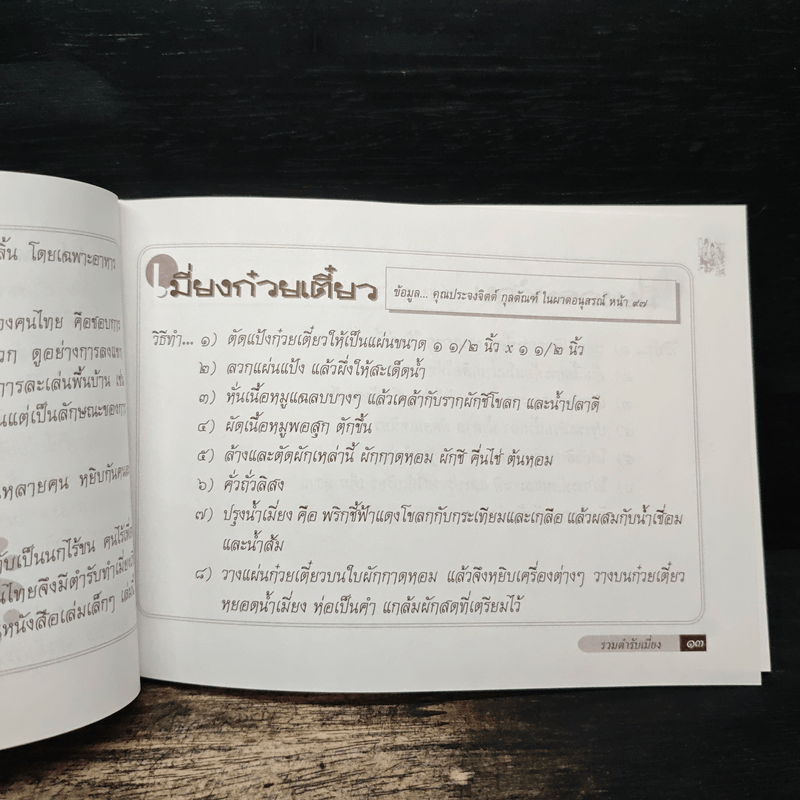 ลิ้น โดยเฉพาะอาหาร
องคนไทย คือชอบการ
วก ดูอย่างการลงแขก
การละเล่นพื้นบ้าน เช่น
นแต่เป็นลักษณะของการ
นหลายคน หยิบกันคนละ
รับเป็นนกไร้ขน คนไร้เพื่อน
นไทยจึงมีตำรับทำเมี่ยง
นหนังสือเล่มเล็กๆ
เมี่ยงก๋วยเตี๋ยว
ข้อมูล... คุณประจงจิตต์ กุลตัณฑ์ ในผาดอนุสรณ์ หน้า ๙๗
วิธีทำ... ๑) ตัดแป้งก๋วยเตี๋ยวให้เป็นแผ่นขนาด ๑ ๑/๒ นิ้ว x ๑ ๑/๒ นิ้ว
๒) ลวกแผ่นแป้ง แล้วผึ่งให้สะเด็ดน้ำ
๓) หั่นเนื้อหมูแฉลบบางๆ แล้วเคล้ากับรากผักชีโขลก และน้ำปลาดี
๔) ผัดเนื้อหมูพอสุก ตักขึ้น
๕) ล้างและตัดผักเหล่านี้ ผักกาดหอม ผักชี คื่นไช่ ต้นหอม
๖) คั่วถั่วลิสง
๗) ปรุงน้ำเมี่ยง คือ พริกชี้ฟ้าแดงโขลกกับกระเทียมและเกลือ แล้วผสมกับน้ำเชื่อม
และน้ำส้ม
๘) วางแผ่นก๋วยเตี๋ยวบนใบผักกาดหอม แล้วจึงหยิบเครื่องต่างๆ วางบนก๋วยเตี๋ยว
หยอดน้ำเมี่ยง ห่อเป็นคำ แกล้มผักสดที่เตรียมไว้
รวมตำรับเมี่ยง ๑๓